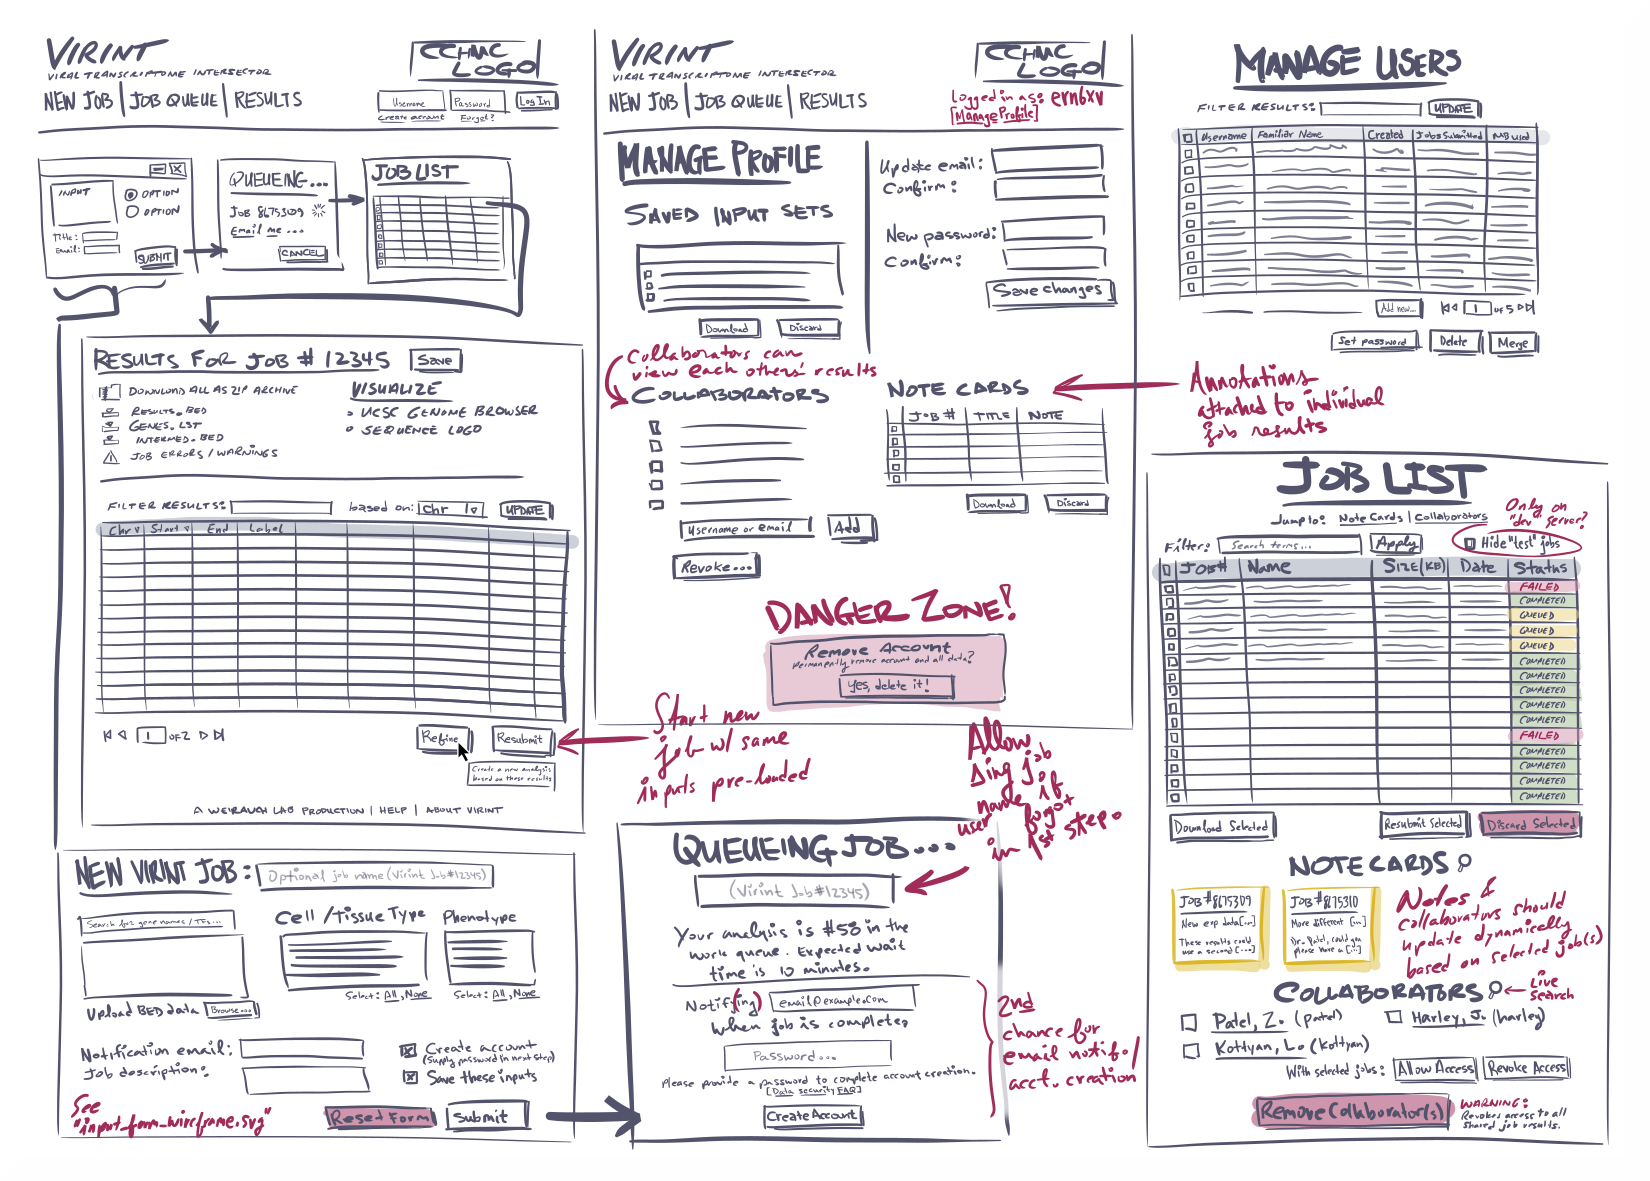 VIRINT
VIRAL TRANSCRIPTOME INTERSECTOR
CCHMC LOGO
NEW JOB | JOB QUEUE | RESULTS
Username
Password
Log In
Create account
Forgot?
INPUT
OPTION
OPTION
Title:
Email:
SUBMIT
QUEUEING...
Job 8675309
Email me ...
CANCEL
JOB LIST
RESULTS FOR JOB # 12345
Save
DOWNLOAD ALL AS ZIP ARCHIVE
RESULTS.BED
GENES.LST
INTERMED.BED
JOB ERRORS / WARNINGS
VISUALIZE
UCSC GENOME BROWSER
SEQUENCE LOGO
FILTER RESULTS:
based on:
Chr
UPDATE
Chr
Start
End
Label
1 OF 2
Refine
Resubmit
Create a new analysis
based on these results
A WEIRAUCH LAB PRODUCTION | HELP | ABOUT VIRINT
Start new
job w/ same
inputs pre-loaded
NEW VIRINT JOB:
Optional job name (Virint Job #12345)
Search for gene names / TFs...
Cell / Tissue Type
Phenotype
Select: All, None
Select: All, None
Upload BED data
Browse...
Notification email:
Job description:
Create account
(Supply password in next step)
Save these inputs
See
"input_form_wireframe.svg"
Reset Form
Submit
VIRINT
VIRAL TRANSCRIPTOME INTERSECTOR
CCHMC LOGO
NEW JOB | JOB QUEUE | RESULTS
logged in as: ern6xv
[Manage Profile]
MANAGE PROFILE
SAVED INPUT SETS
Download
Discard
Update email:
Confirm:
New password:
Confirm:
Save changes
Collaborators can
view each others' results
COLLABORATORS
Username or email
Add
Revoke...
NOTE CARDS
JOB #
TITLE
NOTE
Download
Discard
Annotations
attached to individual
job results
DANGER ZONE!
Remove Account
Permanently remove account and all data?
Yes, delete it!
Allow
ing job
name if
user forgot
in 1st step.
QUEUEING JOB...
(Virint Job #12345)
Your analysis is #58 in the
work queue. Expected wait
time is 10 minutes.
Notif(ying)
email@example.com
when job is complete;
Password...
Please provide a password to complete account creation.
[Data security FAQ]
Create Account
2nd
chance for
email notif./
acct. creation
MANAGE USERS
FILTER RESULTS:
UPDATE
Username
Familiar Name
Created
Jobs Submitted
MB used
Add new...
1 OF 5
Set password
Delete
Merge
JOB LIST
Jump to: Note Cards | Collaborators
Only on
"dev" server?
Filter:
Search terms...
Apply
Hide "test" jobs
JOB#
Name
SIZE (KB)
Date
Status
FAILED
COMPLETED
QUEUED
QUEUED
QUEUED
COMPLETED
COMPLETED
COMPLETED
COMPLETED
COMPLETED
FAILED
COMPLETED
COMPLETED
COMPLETED
COMPLETED
Download Selected
Resubmit Selected
Discard Selected
NOTE CARDS
JOB #8675309
New exp data[...]
These results could
use a second [...]
JOB #8675310
More different [...]
Dr. Patel, could you
please have a [...]
Notes &
collaborators should
update dynamically
based on selected job(s)
COLLABORATORS
Live
search
Patel, Z. (patel)
Harley, J. (harley)
Kottyan, L. (Kottyan)
With selected jobs:
Allow Access
Revoke Access
Remove Collaborator(s)
WARNING:
Revokes access to all
shared job results.